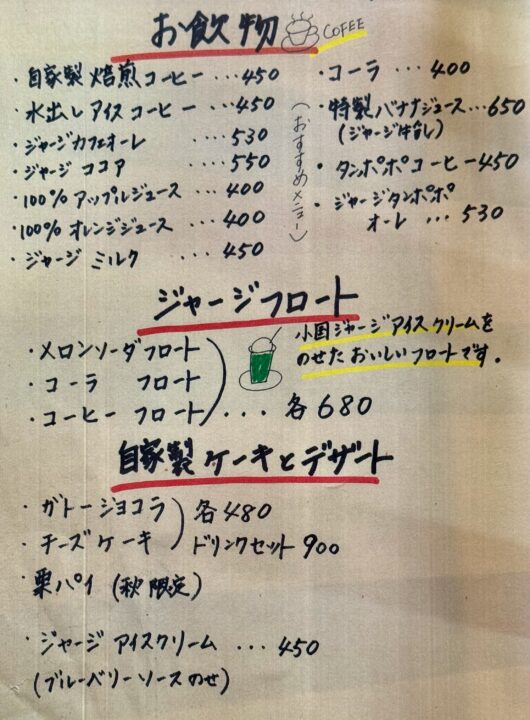 お飲物 COFEE
・自家製焙煎コーヒー ...450
・水出しアイスコーヒー ...450
・ジャージカフェオーレ ...530
・ジャージ ココア ....550
・100%アップルジュース ...400
・100% オレンジジュース ...400
・ジャージ ミルク ....450
(おすすめメニュー)
・コーラ ...400
・特製バナナジュース...650
(ジャージ牛乳)
・タンポポコーヒー450
・ジャージタンポポ
オーレ ...530
ジャージフロート
小国ジャージアイスクリームを
のせたおいしいフロートです。
・メロンソーダフロート
・コーラ フロート
・コーヒー フロート) ...各680
自家製ケーキとデザート
・ガトーショコラ
・チーズケーキ
各480
ドリンクセット900
・栗パイ (秋限定)
・ジャージ アイスクリーム ...450
(ブルーベリーソースのせ)